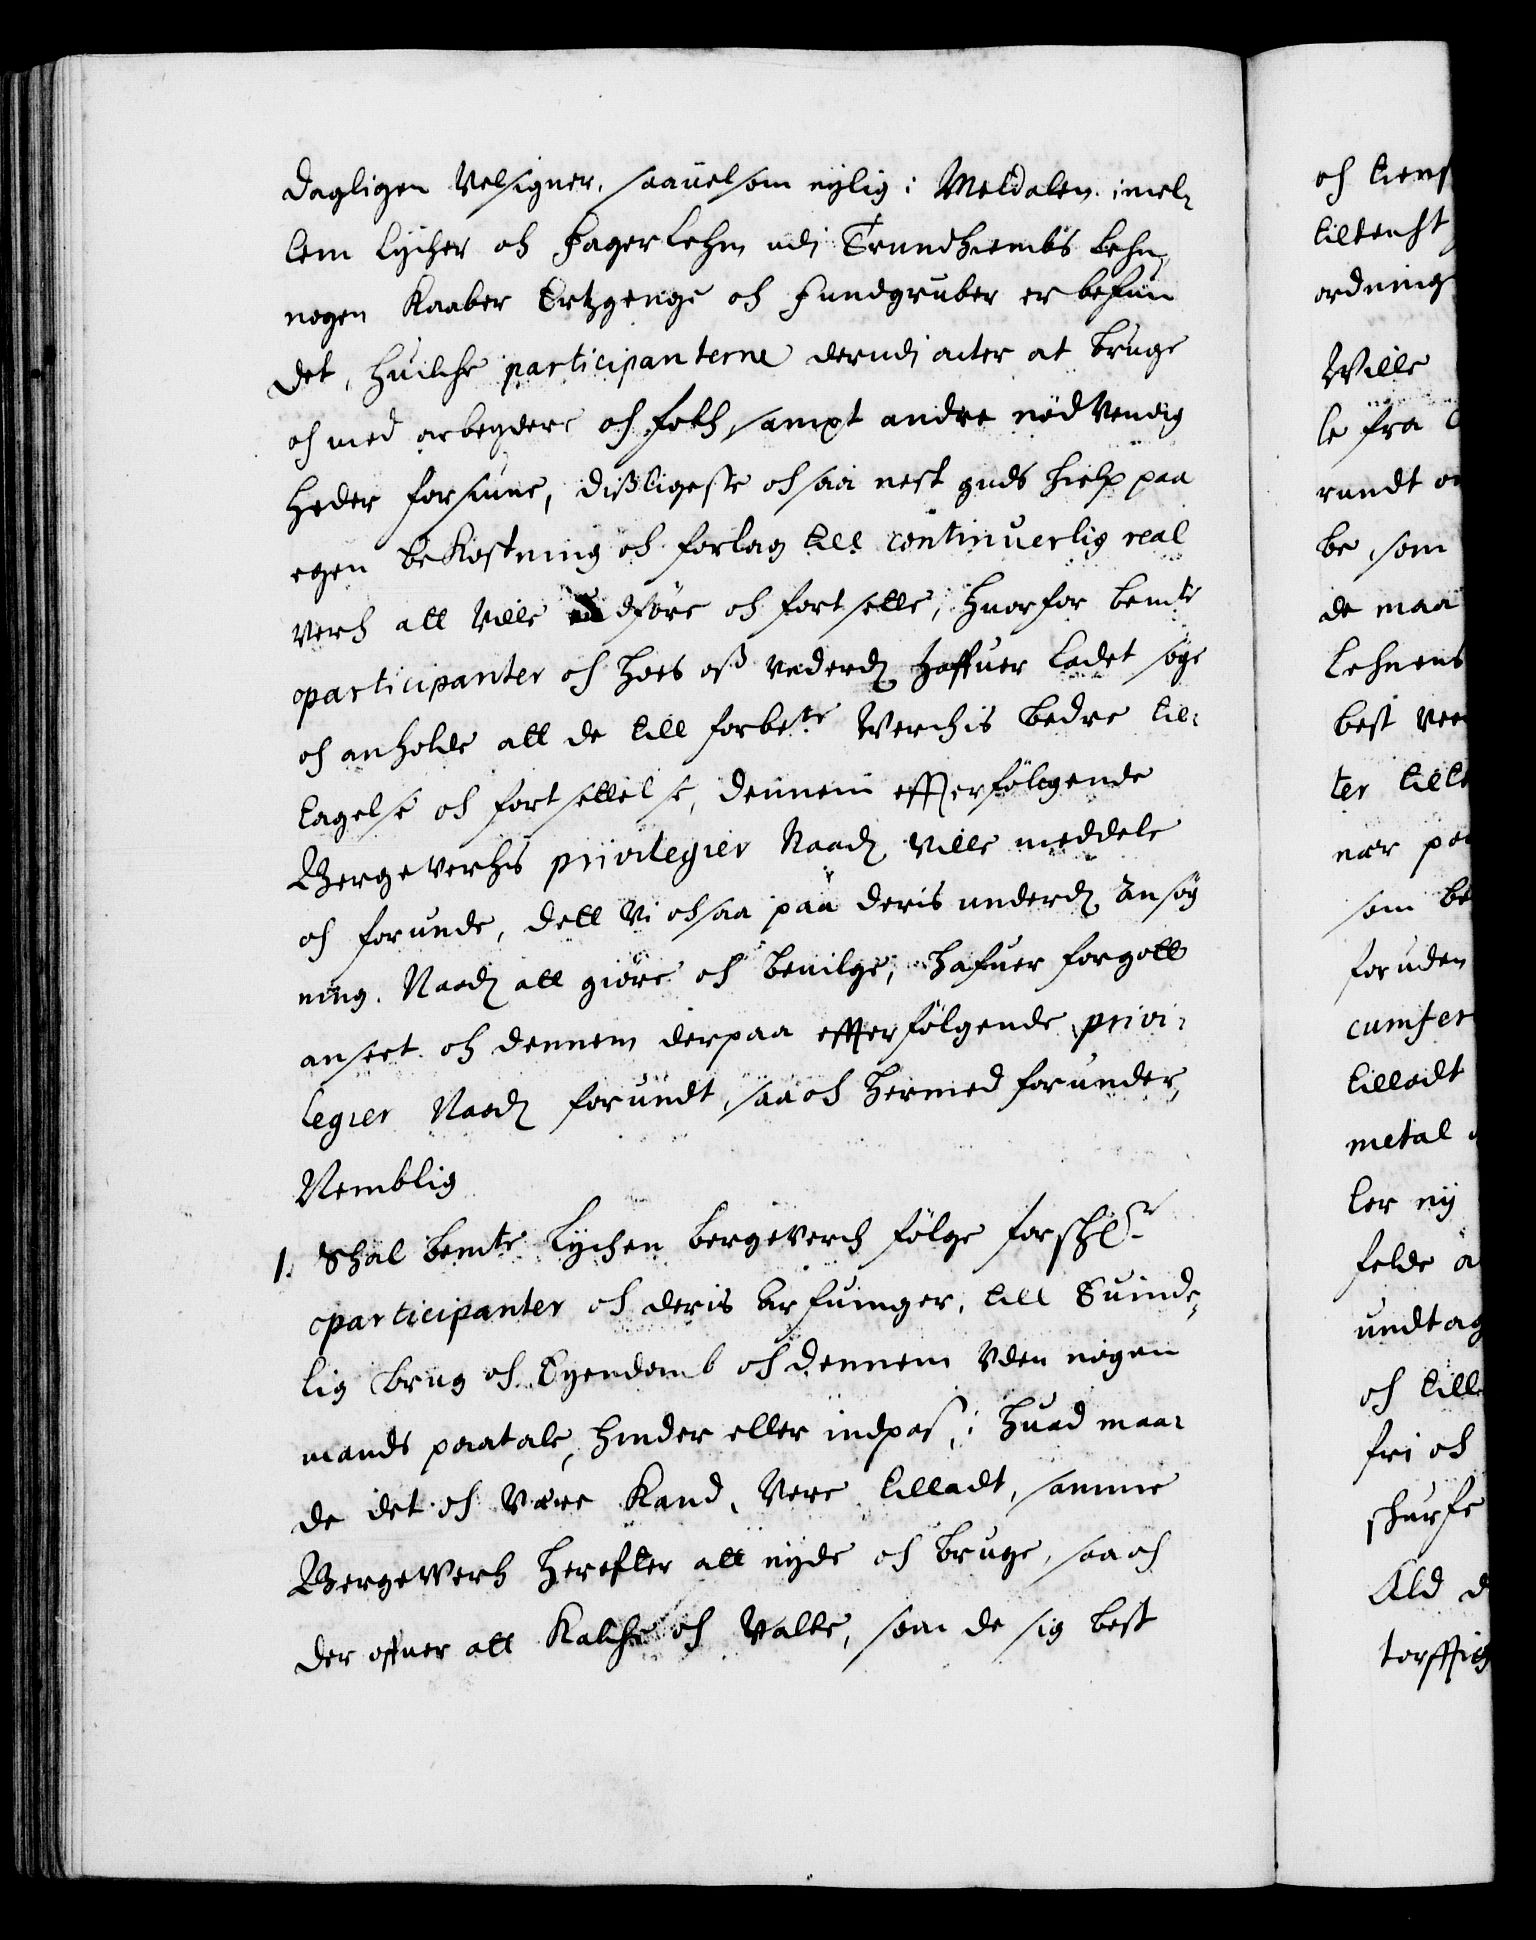 dagligen velsigner, saauelsom nylig i Meldalen imel-
lem Lycher och Fagerlehn udi Trundhiembs Lehn,
nogen Kaaber Ertzgenge och Fundgruber er befun
det, huilche participanterne derudi acter at bruge
och med arbeydere och folch sampt andre nødvendig
heder forsiune, dißligeste och saa nest guds hielp paa
egen bekostning och forlag till continuerlig real
verch att ville udføre och fortsette, huorfor bemte
participanter och hoes oß underd haffuer ladet søge
och anholde att de till forbete Werchis bedre til-
tagelse och fortsettelse, dennem effterfølgende
Bergverchs privilegier Naad ville meddele
och forunde, dett Vi och saa paa deris underd Ansøg
ning Naad att giøre och beuilge, hafuer forgott
anseet och dennem derpaa effterfølgende privi-
legier Naad forundt, saa och hermed forunder,
Nemblig
1. Schal bemte Lychen bergeverch følge forschr
participanter och deris Arfuinger, till Euinde-
lig brug och Eyendomb och dennem Uden nogen
mands paatale, hinder eller indpas, i huad maa-
de det och være kand, vere tilladt, samme
Bergewerch herefter att nyde och bruge, saa och
der offuer att schalche och valte, som de sig best
och tiens
tiltencht
ordning
Wille
le fra
rundt om
be, som
de maa
Lehnens
best
ter till
nær paa
som be
foruden
cumfer
tilladt
metal
ler ny
felde a
undtag
och till
fri och
schurfe
Ald d
torfftig